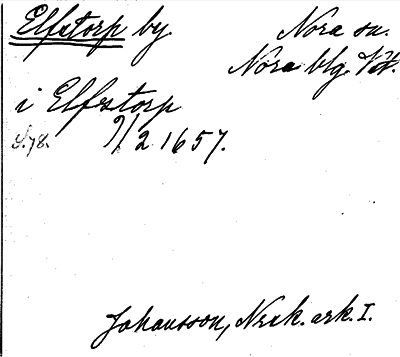 Elfstorp by
Nora sn.
Nora blg. Vstm.
i Elfstorp
S. 78. 9/2 1657.
Johansson, Nrak. ark. I.